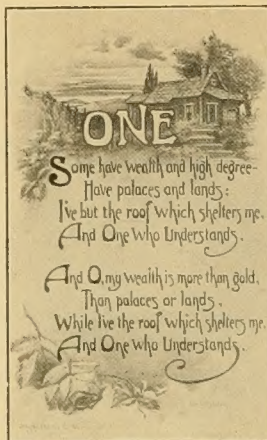 ONE
Some have wealth and high degree-
Have palaces and lands:
I've but the roof which shelters me,
And One Who Understands.
And O, my wealth is more than gold,
Than palaces or lands,
While I've the roof which shelters me,
And One who Understands.